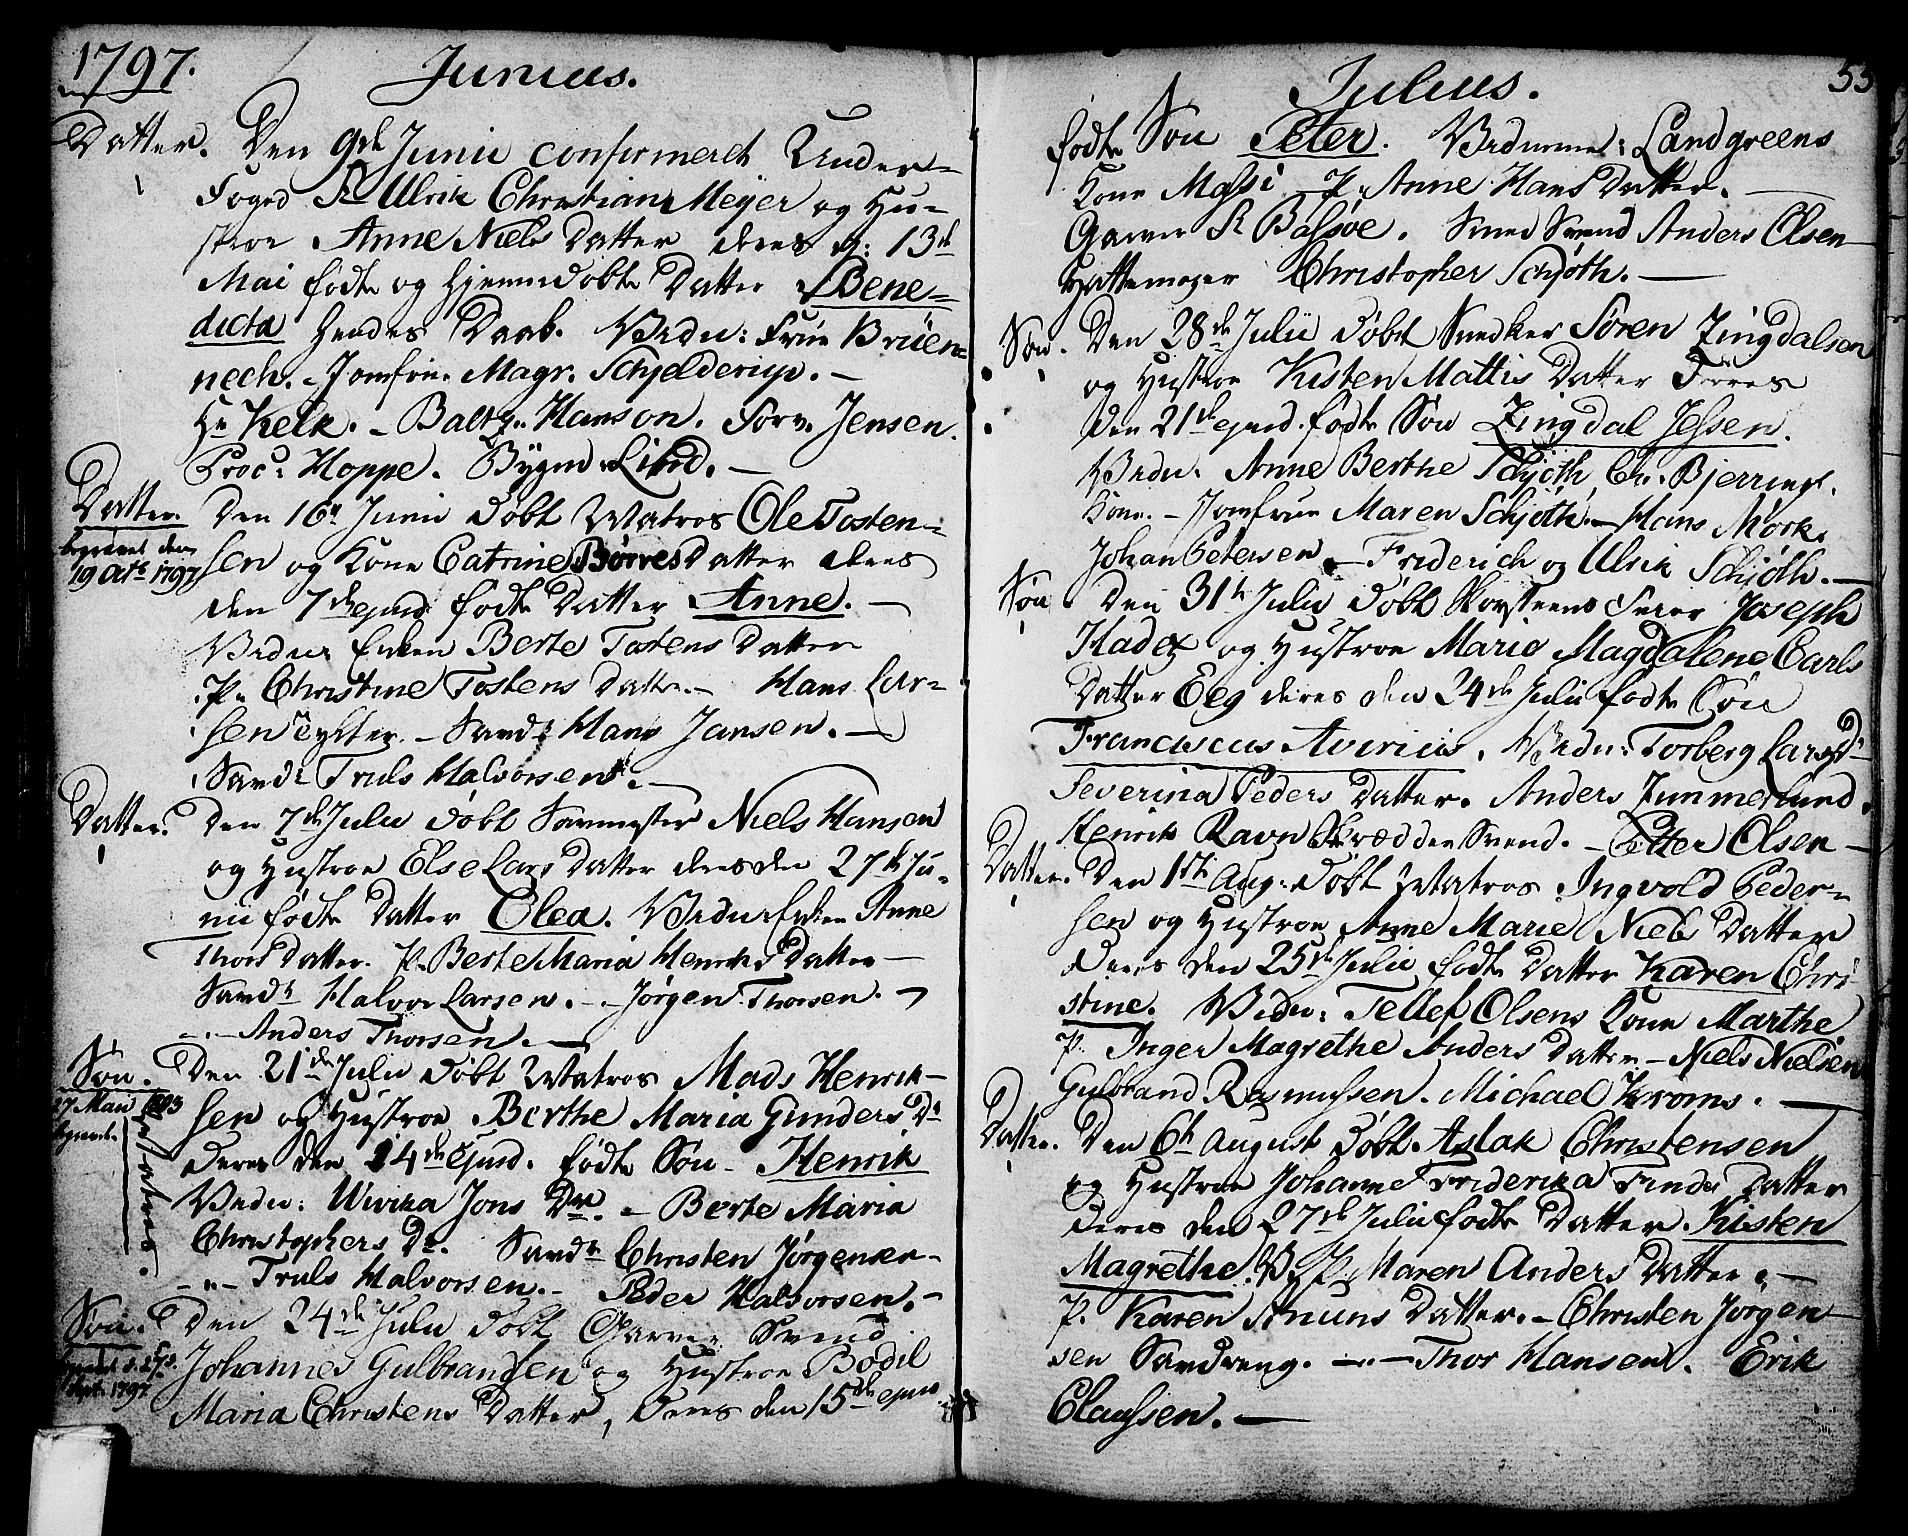 1797. Junius.
Datter. Den 9de Junii confirmeret Under-
Foged Sr Ulrik Christian Meyer og Hu-
stroe Anne Niels Datter deres d: 13de
Mai fødte og hjemmedøbte Datter Bene-
dicta hendes Daab. Vidn: Frue Brüen-
nech. - Jomfrue Magr. Schjelderup. -
Hr Kelk. - Baltz. Hanson. Forv. Jensen.
Proc: Hoppe. Bygm. Lind. -
Datter. Den 16de Junii døbt Matros Ole Tosten-
begravet den
19 Octb 1797
sen og Kone Catrine Børres Datter deres
den 7de ejusd. fødte Datter Anne. -
Vidn: Enken Berte Tostens Datter
P. Christine Tostens Datter. - Hans Lar-
sen - Samd: Hans Jansen. -
Samd: Truls Halvorsen. -
Datter. Den 7de Julii døbt Niels Hansen
og Hustroe Else Lars Datter deres den 27de Ju-
nii fødte Datter Olea. Vidn: Enken Anne
Thors Datter. P. Berte Maria Henriks Datter -
Samd: Halvor Larsen. - Jørgen Thorsen. -
- Anders Thorsen. -
Søn. Den 21de Julii døbt Matros Mads Henrik-
17 Maii 1803
begravet.
sen og Hustroe Berthe Maria Gunders Dr
Deres den 14de ejusd. fødte Søn - Henrik
Vidn: Wiviza Jons Dtr. - Berte Maria
Christophers Dr. Samd: Christen Jørgensen -
- " - Truls Halvorsen. - Peder Halvorsen. -
Søn. Den 24de Julii døbt Garver Svend
Sept. 1797
Johannes Gulbrandsen og Hustroe Bodil
Maria Christens Datter, Deres den 15de ejusd
Julius. 53
fødte Søn Peter. Vidnerne: Landgreens
Kone Massi - P. Anne Hans Datter. -
Garver Sr Balsøe. Smed Svend Anders Olsen
Hattemager Christopher Schjøth. -
Søn. Den 28de Julii døbt Snedker Søren Zingdalsen
og Hustroe Kisten Mattis Datter Deres
den 21de ejusd. fødte Søn Zingdal Jessen.
Vidn: Anne Berthe Schjøth Chr. Bjerrings
Kone. - Jomfrue Maren Schjøth. - Hans Mørk.
Johan Petersen - Friderich og Ulrik Schjøth. -
Søn. Den 31te Julii døbt Skorsteens Feier Joseph
Kadetz og Hustroe Marie Magdalene Carls
Datter Eeg deres den 24de Julii fødte Søn
Franciscus Averius. Vidn: Torberg Larsd:
Severina Peders Datter. Anders Zimmerlund.
Henrik Ravn Skrædder Svend. - Petter Olsen -
Datter. Den 1ste Aug: døbt Matros Ingvold Peder-
sen og Hustroe Anne Marie Niels Datter
Deres den 25de Julii fødte Datter Karen Chri
stine. Vidn: Tellef Olsens Kone Marthe
P. Inger Magrethe Anders Datter - Niels Nielsen
Gulbrand Rasmussen. Michael Kroms. -
Datter. Den 6te August døbt Aslak Christensen
og Hustroe Johanne Friderica Finds Datter
deres den 27de Julii fødte Datter Kisten
Magrethe. V: P. Maren Anders Datter. -
P. Karen Knuns Datter. - Christen Jørgen
sen Samdreng. - - Thor Hansen. Erik
Claussen. -